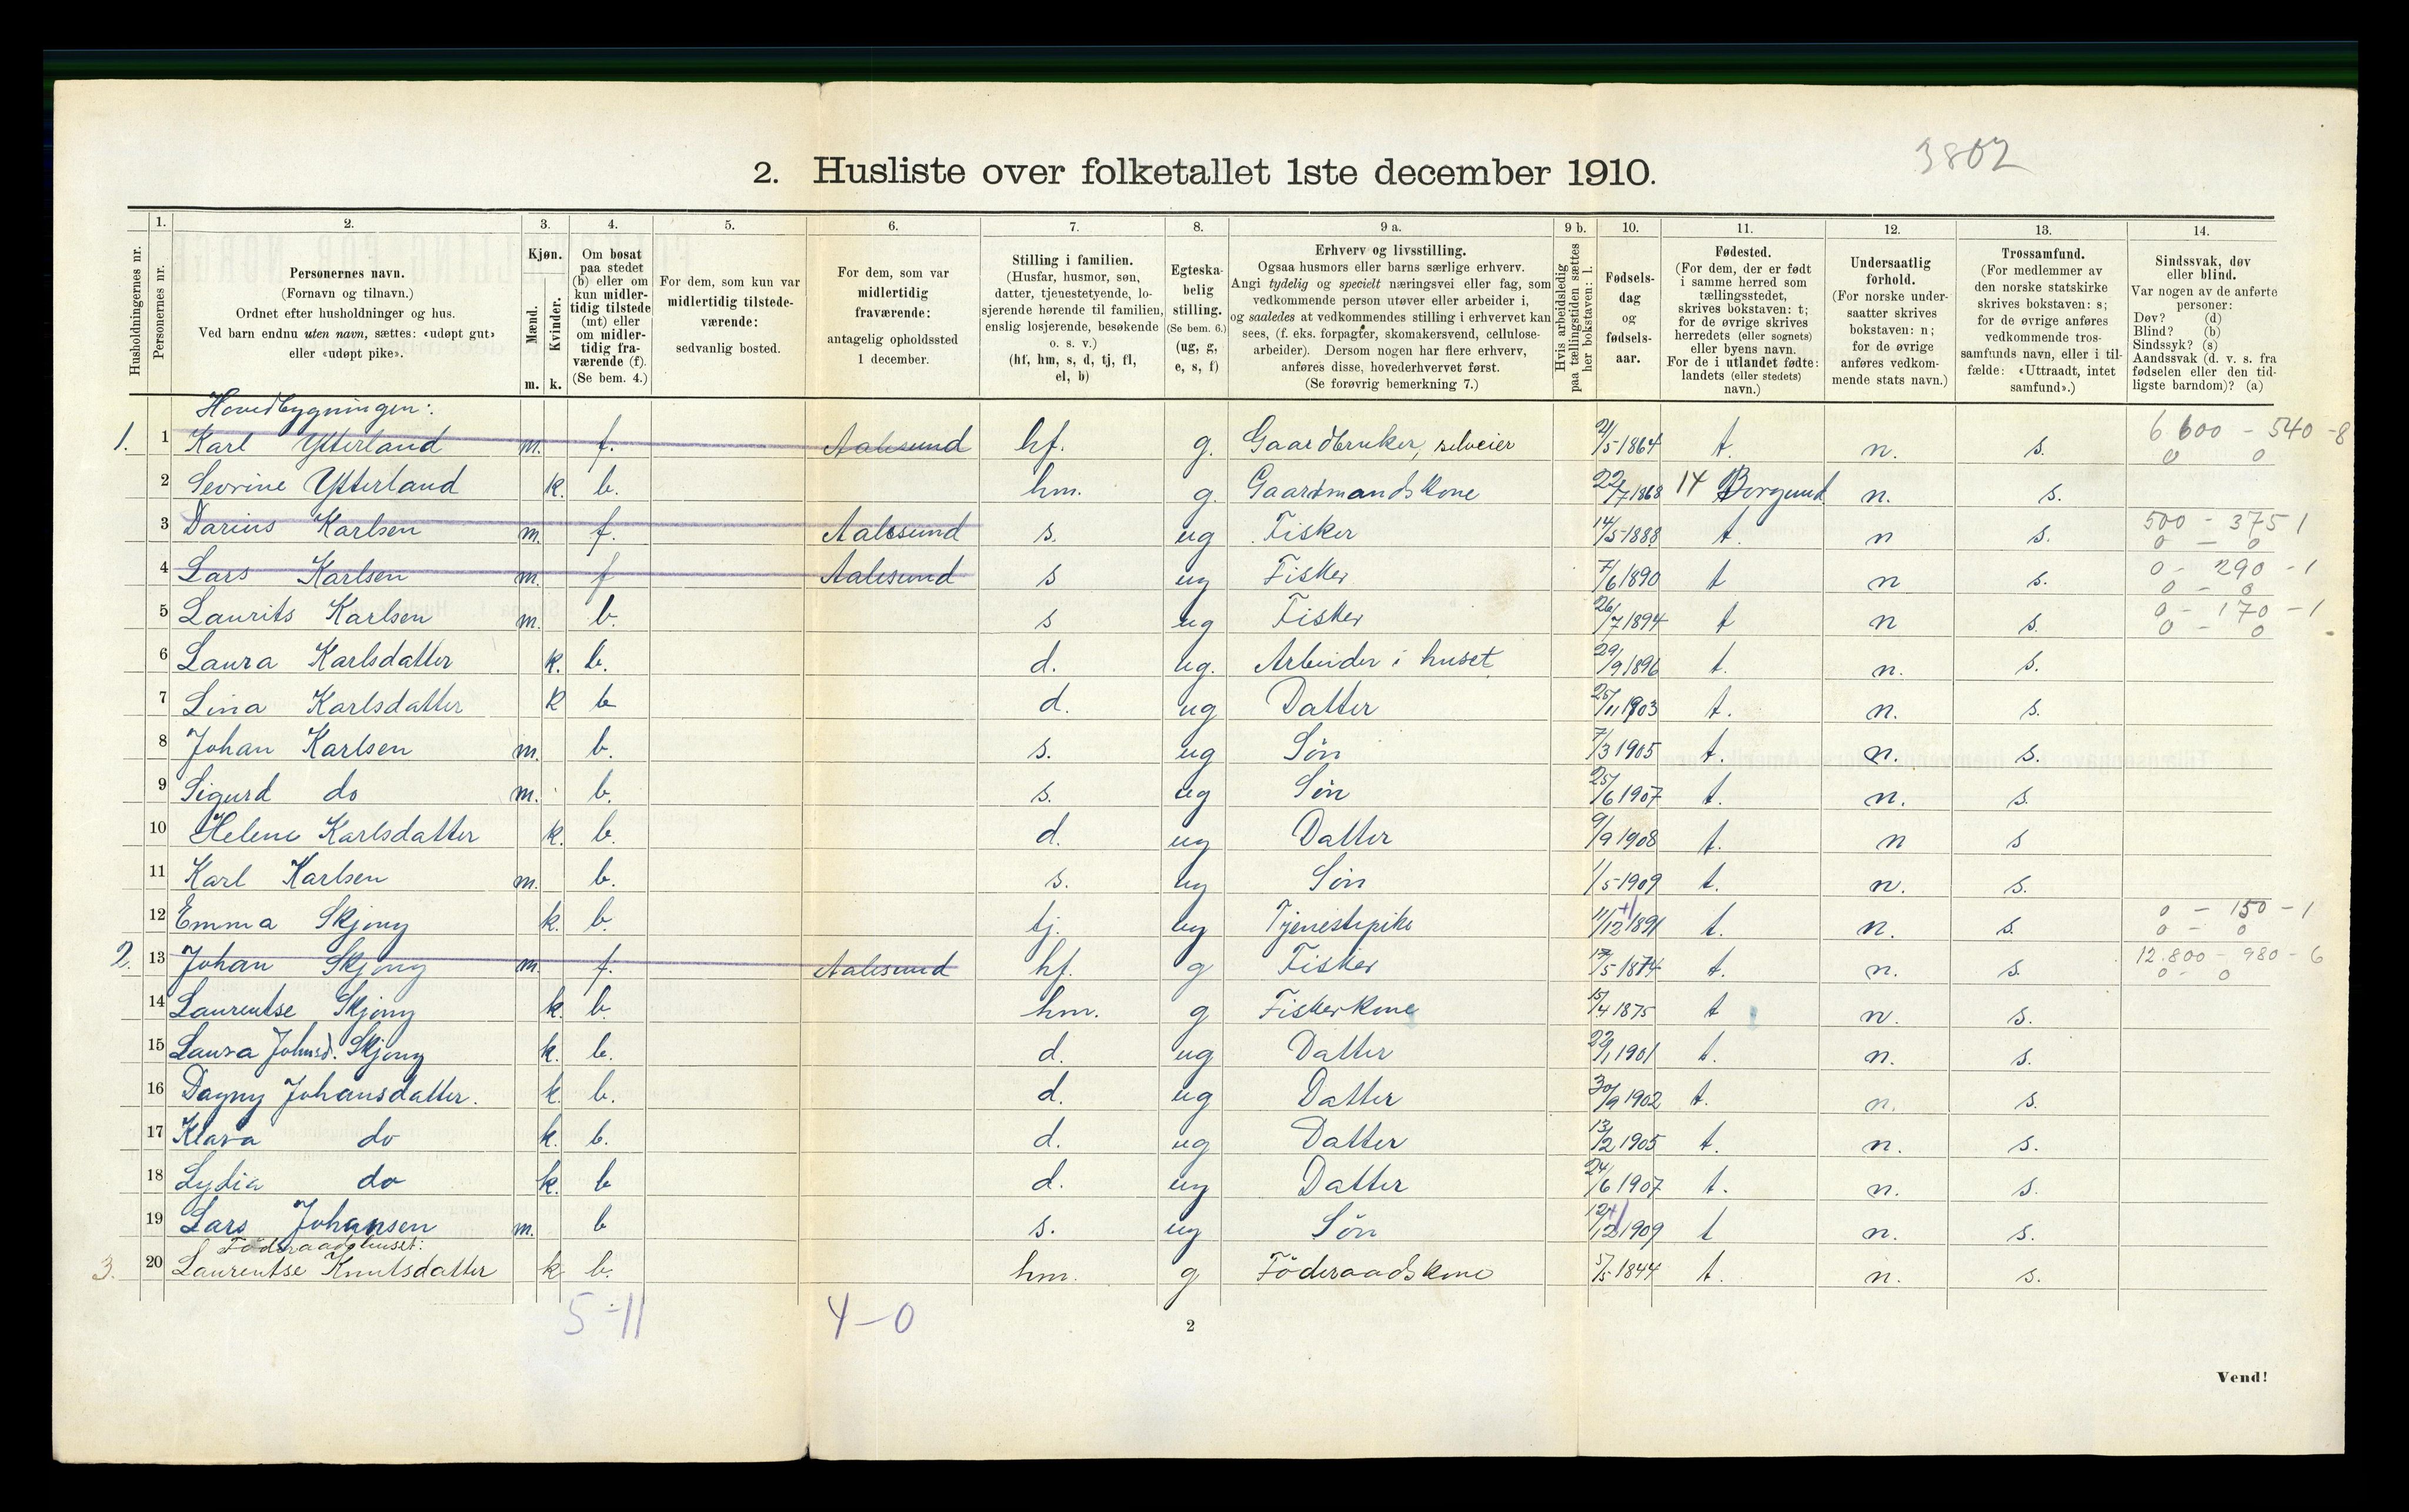 3802
2. Husliste over folketallet 1ste december 1910.
Husholdningernes nr.
1. Personernes nr.
2. Personernes navn. (Fornavn og tilnavn.) Ordnet efter husholdninger og hus. Ved barn endnu uten navn, sættes: «udøpt gut» eller «udøpt pike».
3. Kjøn. Mænd. m. Kvinder. k.
4. Om bosat paa stedet (b) eller om kun midlertidig tilstede (mt) eller om midlertidig fraværende (f). (Se bem. 4.)
5. For dem, som kun var midlertidig tilstedeværende: sedvanlig bosted.
6. For dem, som var midlertidig fraværende: antagelig opholdssted 1 december.
7. Stilling i familien. (Husfar, husmor, søn, datter, tjenestetyende, losjerende hørende til familien, enslig losjerende, besøkende o. s. v.) (hf, hm, s, d, tj, fl, el, b)
8. Egteskabelig stilling. (Se bem. 6.) (ug, g, e, s, f)
9 a. Erhverv og livsstilling. Ogsaa husmors eller barns særlige erhverv. Angi tydelig og specielt næringsvei eller fag, som vedkommende person utøver eller arbeider i, og saaledes at vedkommendes stilling i erhvervet kan sees, (f. eks. forpagter, skomakersvend, cellulosearbeider). Dersom nogen har flere erhverv, anføres disse, hovederhvervet først. (Se forøvrig bemerkning 7.)
9 b. Hvis arbeidsledig paa tællingstiden sættes her bokstaven: l.
10. Fødselsdag og fødselsaar.
11. Fødested. (For dem, der er født i samme herred som tællingsstedet, skrives bokstaven: t; for de øvrige skrives herredets (eller sognets) eller byens navn. For de i utlandet fødte: landets (eller stedets) navn.)
12. Undersaatlig forhold. (For norske undersaatter skrives bokstaven: n; for de øvrige anføres vedkommende stats navn.)
13. Trossamfund. (For medlemmer av den norske statskirke skrives bokstaven: s; for de øvrige anføres vedkommende trossamfunds navn, eller i tilfælde: «Uttraadt, intet samfund».)
14. Sindssvak, døv eller blind. Var nogen av de anførte personer: Døv? (d) Blind? (b) Sindssyk? (s) Aandssvak (d. v. s. fra fødselen eller den tidligste barndom)? (a)
Hovedbygningen:
1. 1 Karl Ytterland m. f. Aalesund hf. g. Gaardbruker, selveier 21/5 1864 t. n. s. 6600 - 540 - 8 0 0
2 Sevrine Ytterland k. b. hm. g. Gaardmandskone 22/7 1868 14 Borgund n. s.
3 Darius Karlsen m. f. Aalesund s. ug Fisker 14/5 1888 t. n s. 500 - 375 1 0 - 0
4 Lars Karlsen m. f Aalesund s ug Fisker 7/6 1890 t n s. 0 - 290 - 1 0 - 0
5 Laurits Karlsen m. b. s ug Fisker 26/7 1894 t n s. 0 - 170 - 1 0 - 0
6 Laura Karlsdatter k. b. d. ug. Arbeider i huset 29/9 1896 t. n. s.
7 Lina Karlsdatter k b d. ug Datter 25/11 1903 t. n. s.
8 Johan Karlsen m. b. s. ug Søn 7/3 1905 t. n. s.
9 Sigurd do m. b. s. ug Søn 25/6 1907 t. n. s.
10 Helene Karlsdatter k. b. d. ug Datter 9/9 1908 t. n s
11 Karl Karlsen m. b. s. ug Søn 1/5 1909 t. n. s.
12 Emma Skjong k. b. tj. ug Tjenestepike 11/12 1891 t. n. s. 0 - 150 - 1 0 - 0
2. 13 Johan Skjong m. f. Aalesund hf. g Fisker 17/5 1874 t. n. s. 12.800 - 980 - 6 0 - 0
14 Laurentse Skjong k. b. hm. g Fiskerkone 15/4 1875 t n. s.
15 Laura Johnsd. Skjong k. b. d. ug Datter 22/1 1901 t. n. s.
16 Dagny Johansdatter. k. b. d. ug Datter 30/9 1902 t. n. s.
17 Klara do k. b. d. ug Datter 13/2 1905 t. n. s.
18 Lydia do k. b d. ug Datter 24/6 1907 t. n. s.
19 Lars Johansen m. b s. ug Søn 12/12 1909 t n. s.
Föderaadshuset:
3. 20 Laurentse Knutsdatter k b. hm. g Föderaadskone 5/5 1844 t. n. s.
5-11 4-0
2
Vend!